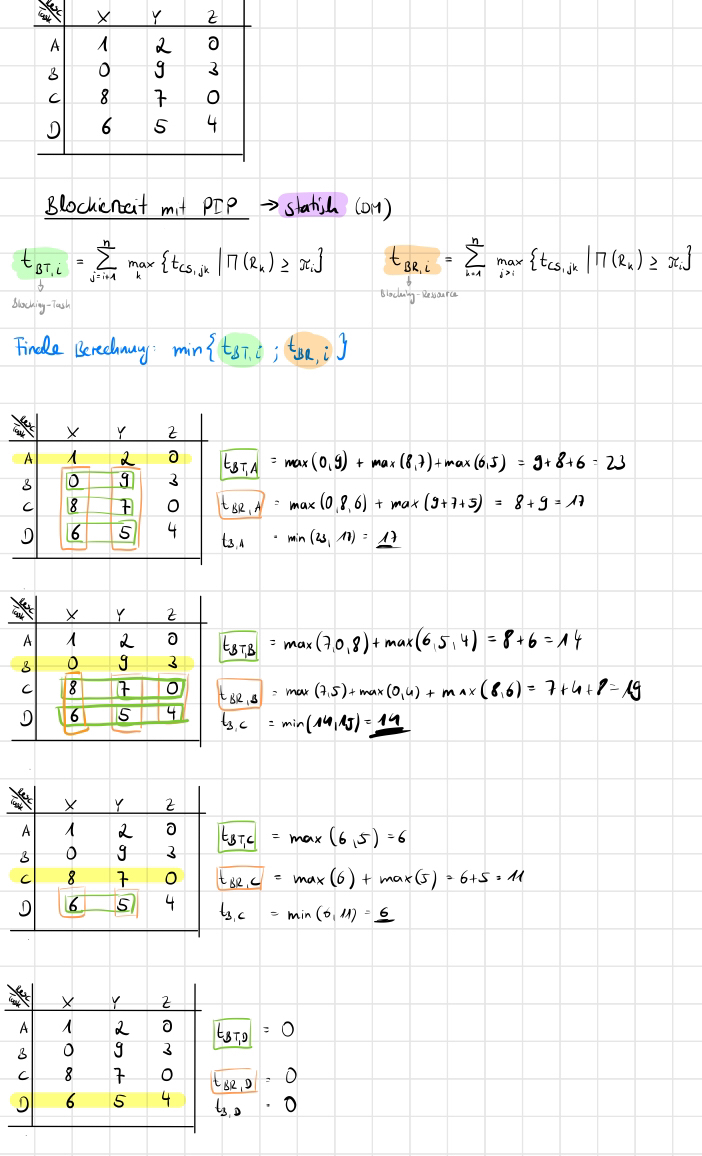 Res. Task X Y Z
A 1 2 0
B 0 9 3
C 8 7 0
D 6 5 4
Blockierzeit mit PIP → statisch (DM)
t_BT,i = Σ_{j=i+1}^{n} max_k {t_CS,jk | Π(R_k) ≥ π_i}
Blocking-Task
t_BR,i = Σ_{k=1}^{n} max_{j>i} {t_CS,jk | Π(R_k) ≥ π_i}
Blocking-Ressource
Finale Berechnung: min{t_BT,i ; t_BR,i}
Res. Task X Y Z
A 1 2 0
B 0 9 3
C 8 7 0
D 6 5 4
t_BT,A = max(0,9) + max(8,7)+max(6,5) = 9+8+6 = 23
t_BR,A = max(0,8,6) + max(9+7+5) = 8+9=17
t_B,A = min(23, 17) = 17
Res. Task X Y Z
A 1 2 0
B 0 9 3
C 8 7 0
D 6 5 4
t_BT,B = max(7,0,8)+max(6,5,4) = 8+6=14
t_BR,B = max(7,5)+max(0,4) + max(8,6) = 7+4+8=19
t_B,C = min(14,15)=14
Res. Task X Y Z
A 1 2 0
B 0 9 3
C 8 7 0
D 6 5 4
t_BT,C = max(6,5) =6
t_BR,C = max(6) + max(5) = 6+5 = 11
t_B,C = min(6,11) = 6
Res. Task X Y Z
A 1 2 0
B 0 9 3
C 8 7 0
D 6 5 4
t_BT,D = 0
t_BR,D = 0
t_B,D = 0